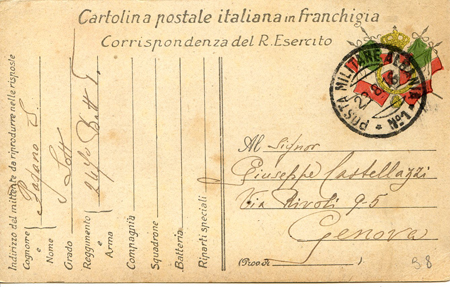 Cartolina postale italiana in franchigia
Corrispondenza del R. Esercito
POSTA MILITARE ALBANIA
22 8 16
Indirizzo del mittente da riprodurre nelle risposte
Cognome e Nome
Pagano S.
Grado
Sott
Reggimento e Arma
Compagnia
Squadrone
Batteria
Riparti speciali
Al Signor
Giuseppe Castellazzi
Via Rivoli 9-5
Genova
(Prov. di )
98